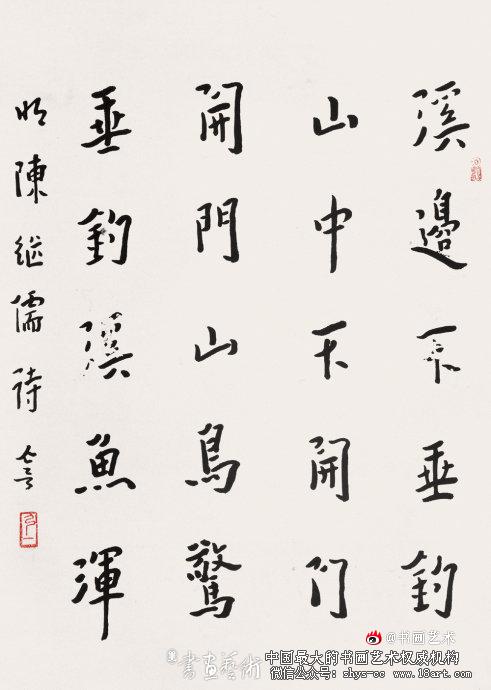 溪邊不垂釣
山中不開门
開門山鳥驚
垂釣溪魚渾
明陳継儒詩
@书画艺术
書畫藝術
中国最大的书画艺术权威机构
微信公众号：shys-cc www.18art.com